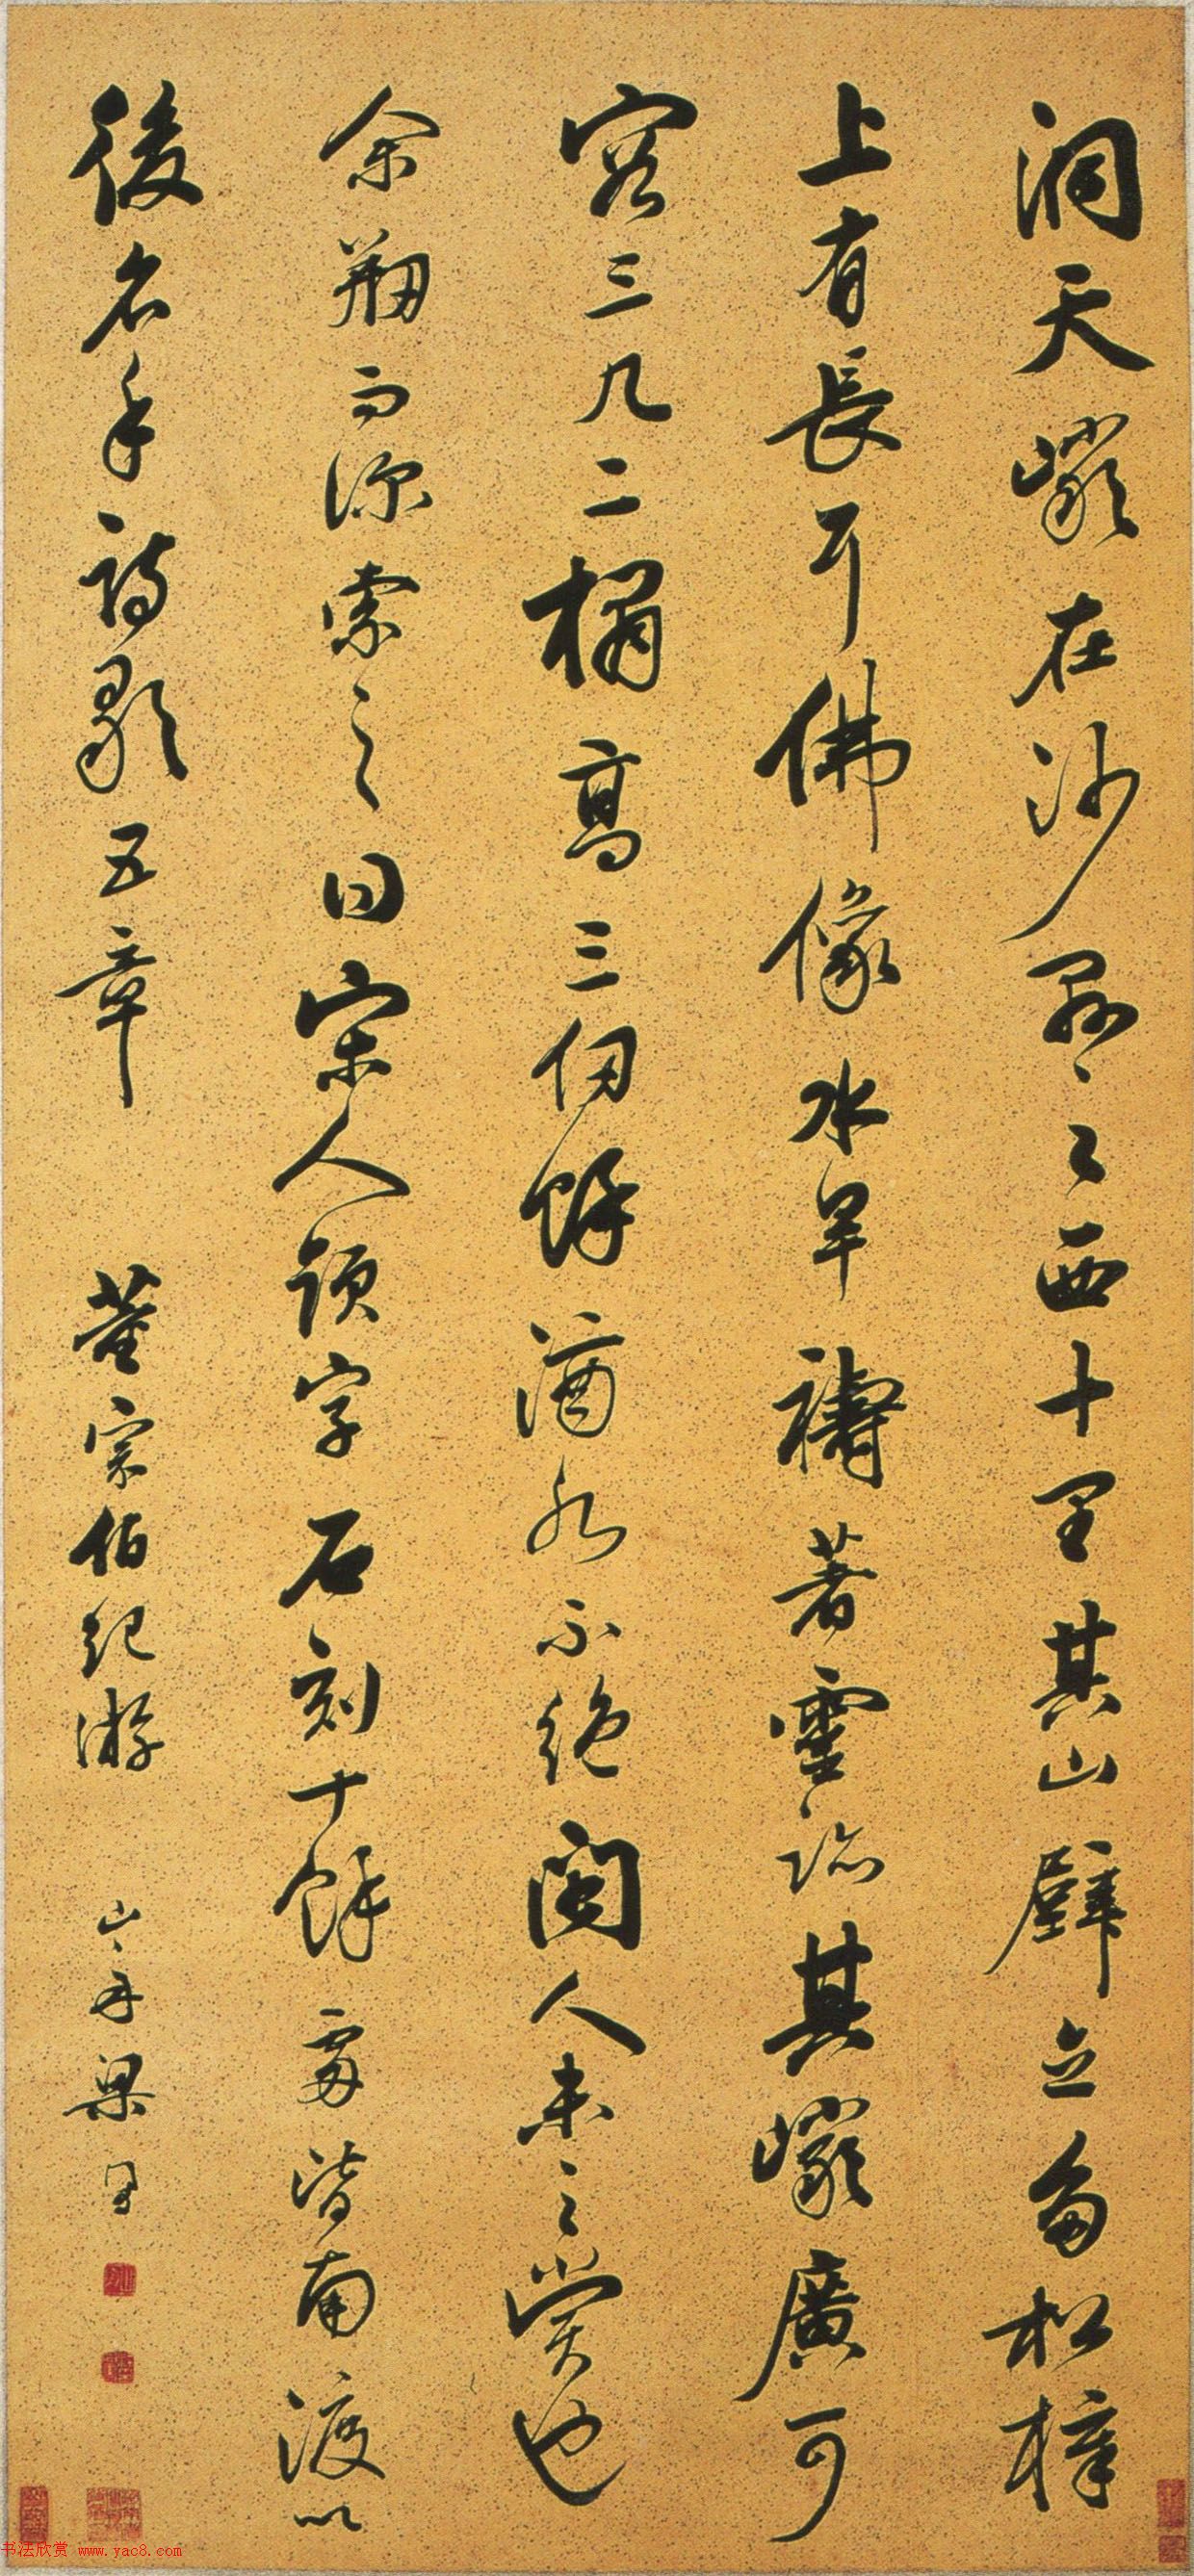 洞天巖在沙縣之西十里其山壁立多松樟
上有長耳佛像水旱禱著靈跡其巖廣可
容三几二榻高三仞餘滴水不絕閩人未之嘗也
余搠而深索之曰宋人題字石刻十餘處皆南渡以
後名手詩歌五章 董宗伯紀游 山舟梁同書
书法欣赏 www.yac8.com